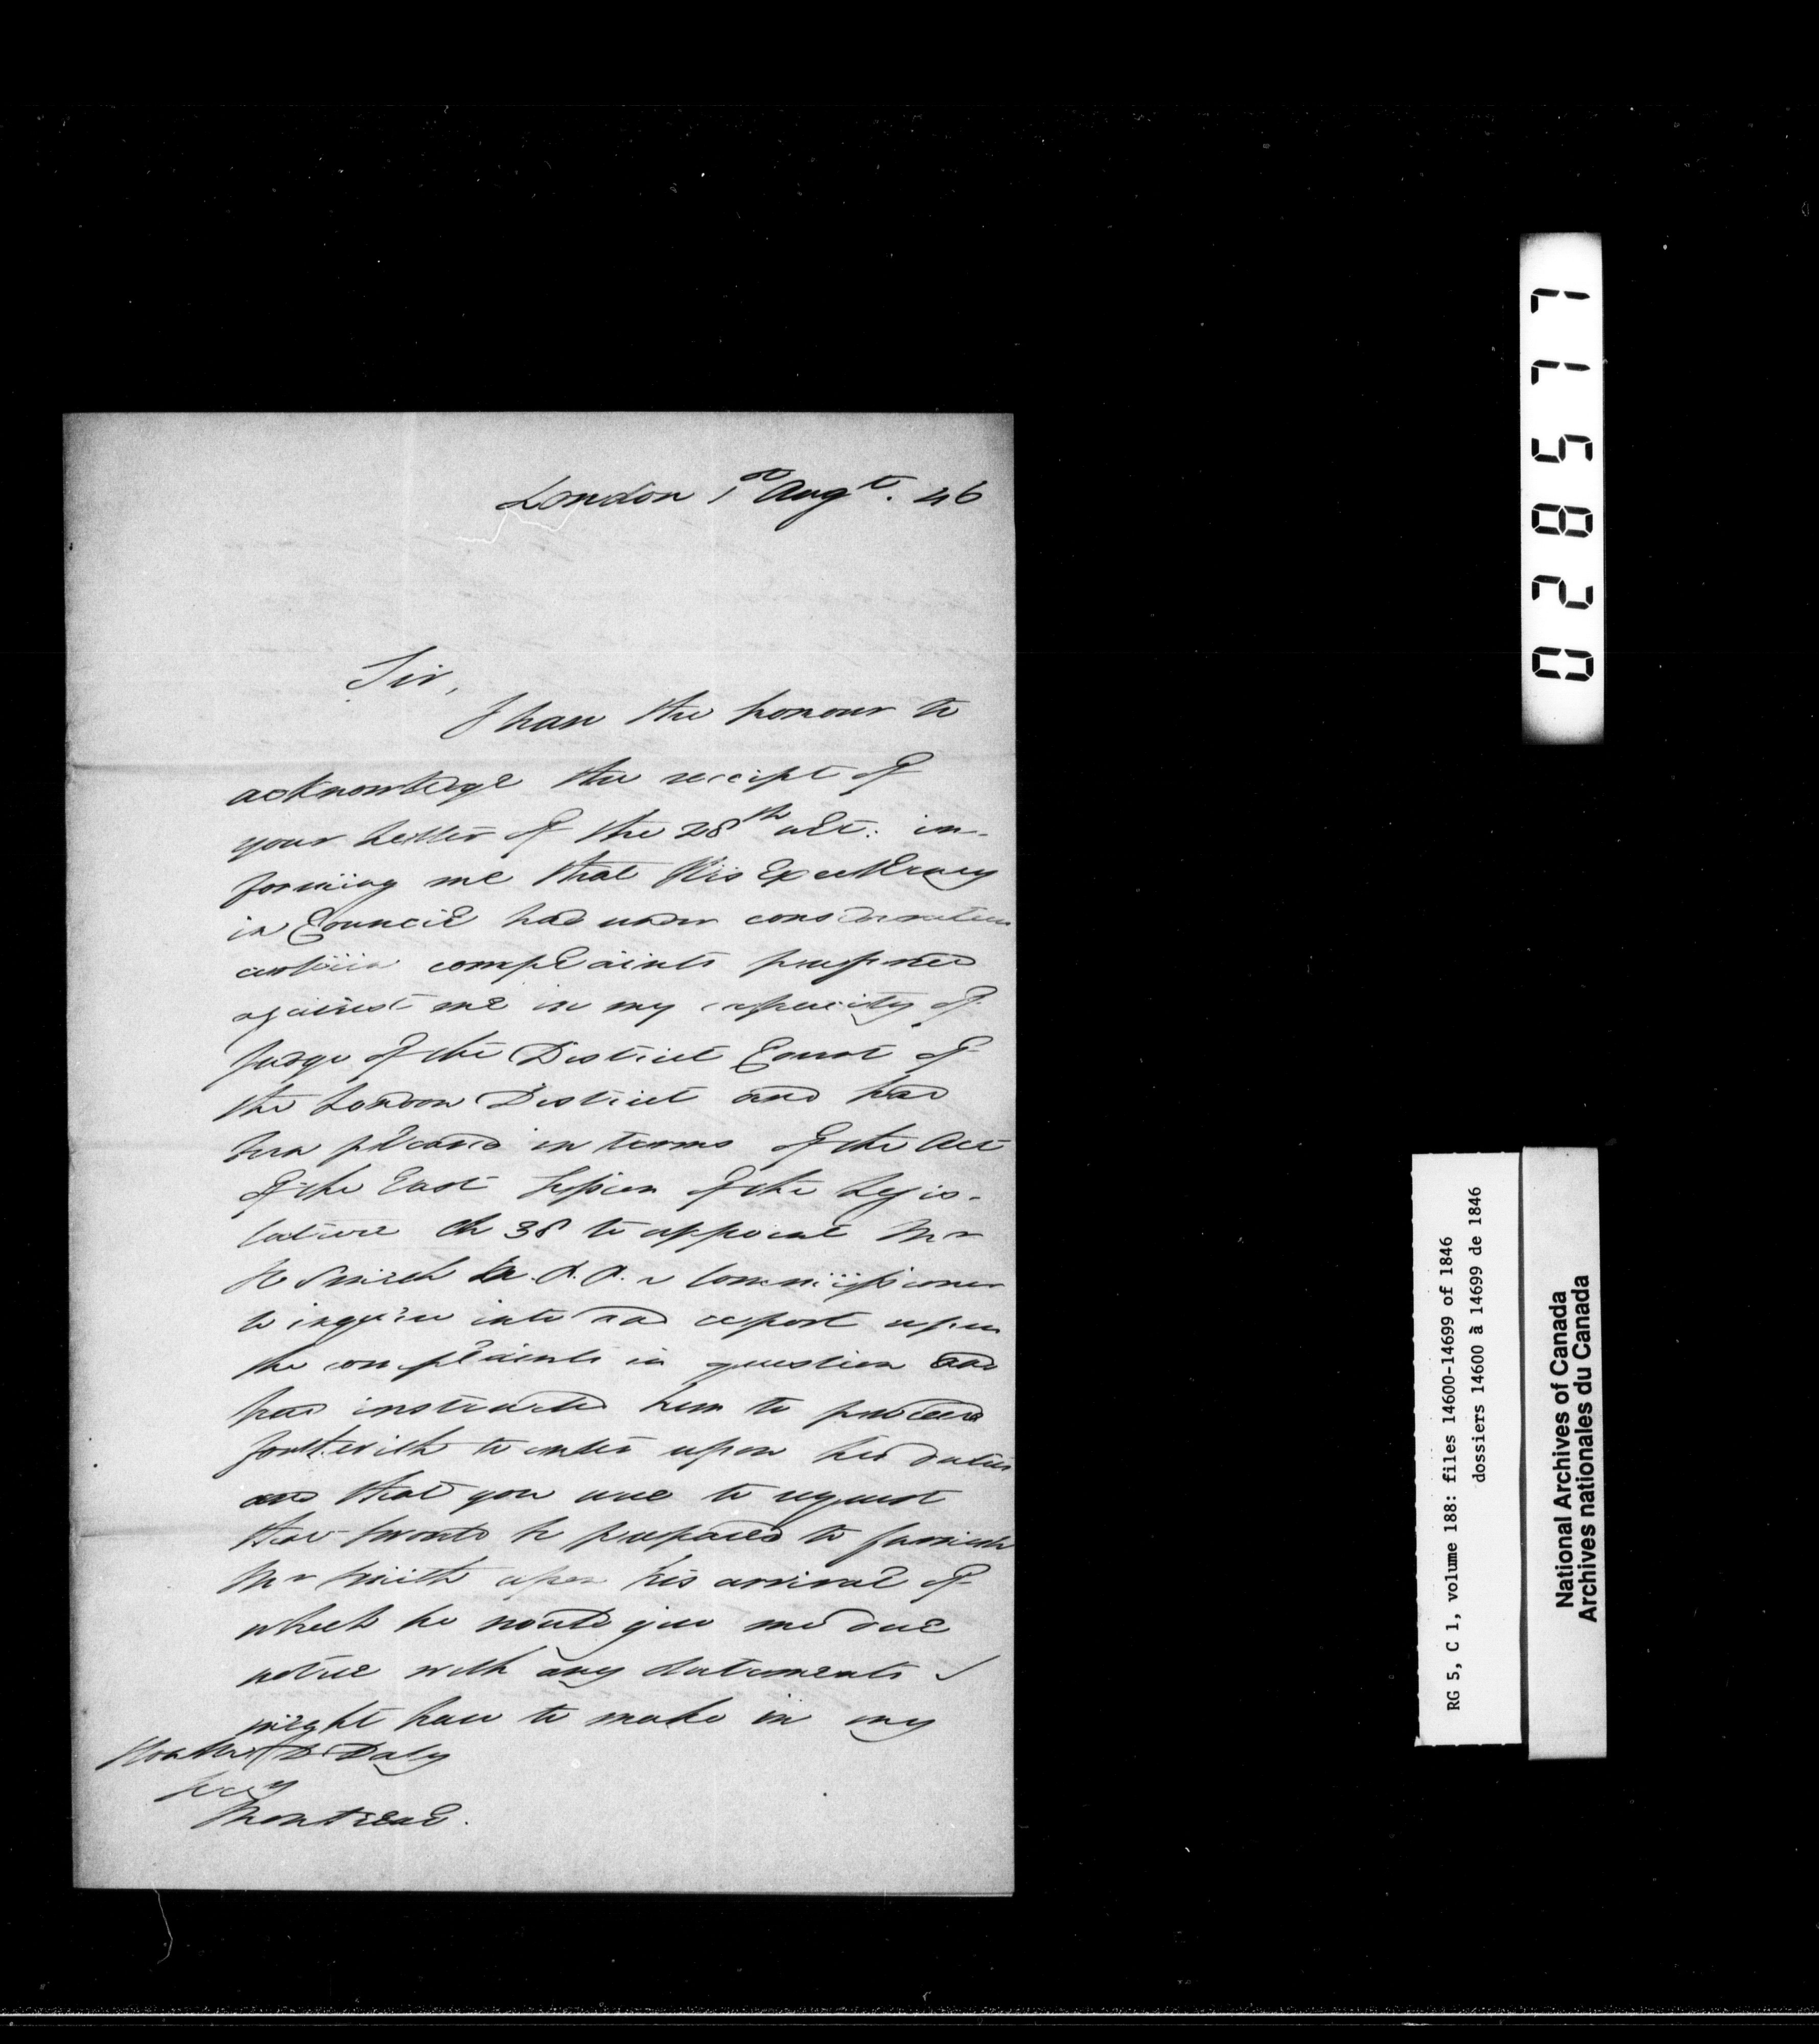 London 1st Augt. 46
Sir,
I have the honour to
acknowledge the receipt of
your letter of the 28th ult: in-
forming me that His Excellency
in Council had under consideration
certain complaints preferred
against me in my capacity of
Judge of the District Court of
the London District and had
been pleased in terms of the Act
of the last Session of the Legis-
lature Ch 38 to appoint Mr
H Smith a Commissioner
to inquire into and report upon
the complaints in question and
had instructed him to proceed
forthwith to enter upon his duties
and that you were to request
that I would be prepared to furnish
Mr Smith upon his arrival of
which he would give me due
notice with any statements I
might have to make in my
Honble D Daly
Secy
Montreal.
028577
RG 5, C 1, volume 188: files 14600-14699 of 1846
dossiers 14600 à 14699 de 1846
National Archives of Canada
Archives nationales du Canada